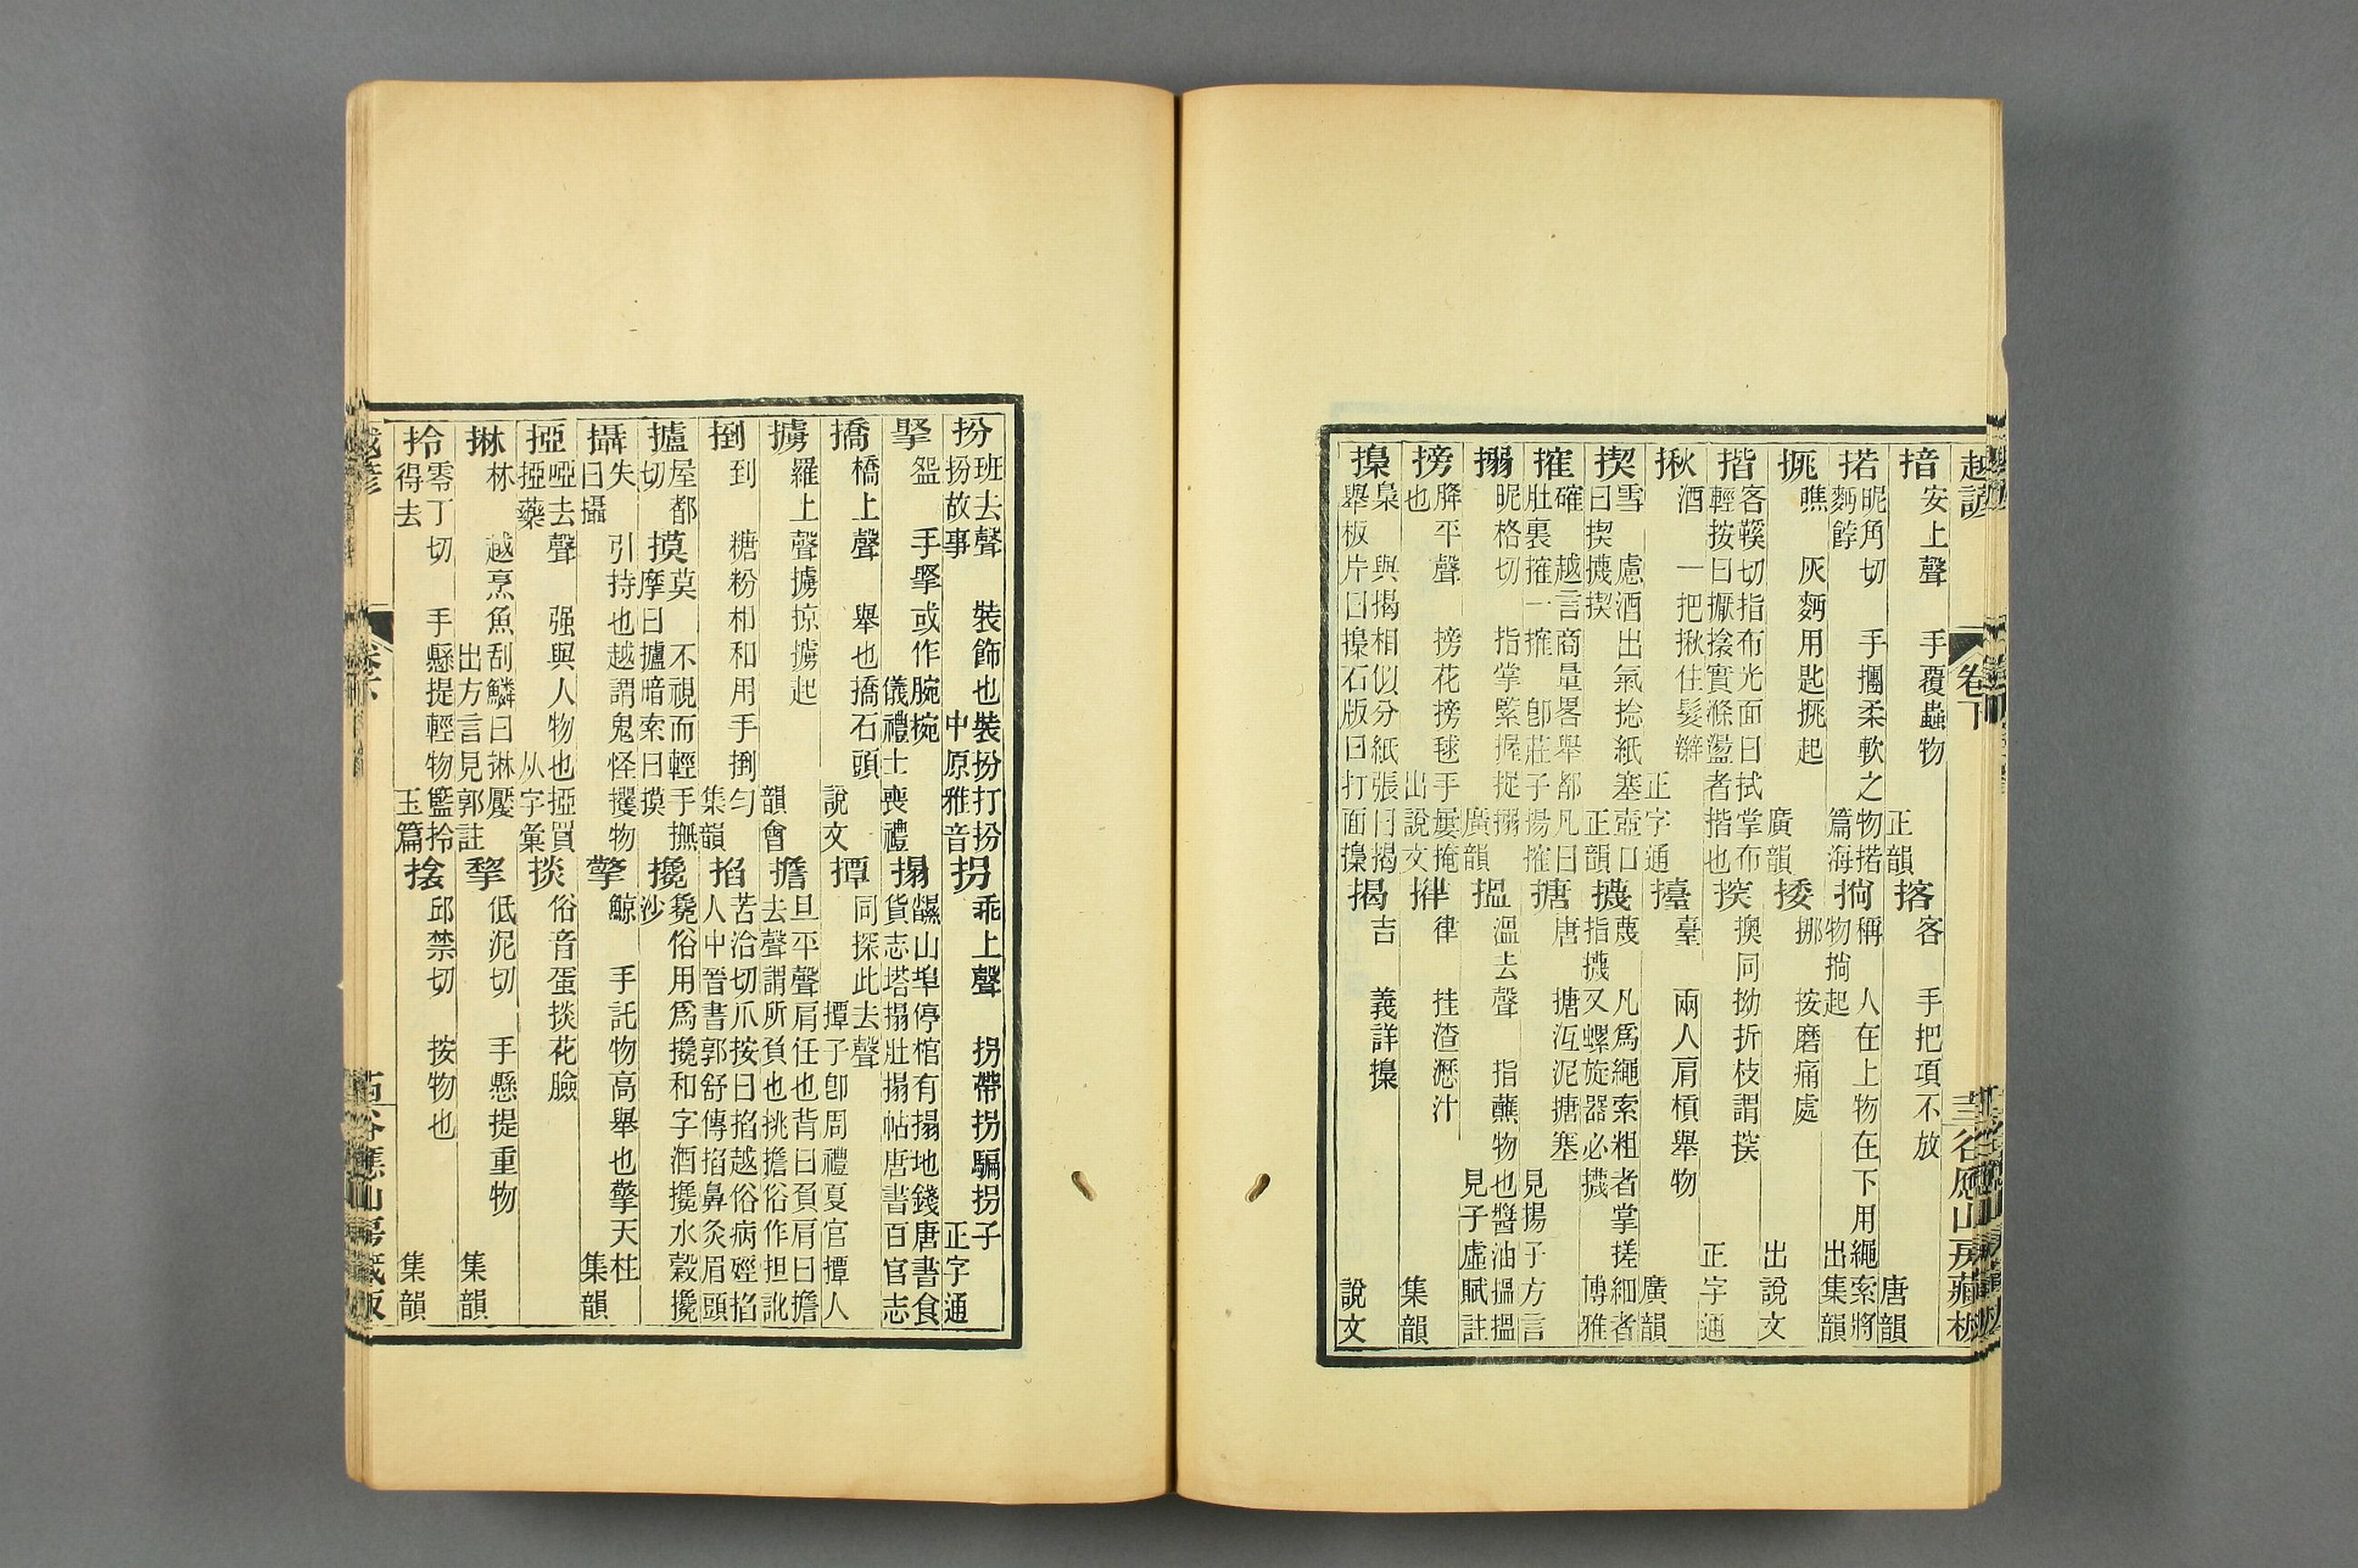 越諺 卷下 谷應山房藏板
揞 安上聲 手覆蟲物 正韻 揢 客 手把項不放 唐韻
掿 昵角切 手摶柔軟之物掿麪餑 篇海 㨄 稱 人在上物在下用繩索將物㨄起 出集韻
㧡 瞧 灰麪用匙㧡起 廣韻 捼 挪 按磨痛處 出說文
揩 客鞵切指布光面曰拭掌布輕按曰擫捻實滌盪者揩也 㨒 擙同拗折枝謂㨒 正字通
揪 酒 一把揪住髮辮 正字通 擡 臺 兩人肩槓舉物 廣韻
揳 雪 慮酒出氣捻紙塞壺口曰揳㩢揳 正韻 㩢 蔑 凡爲繩索粗者掌搓細者指㩢又螺旋器必㩢 博雅
搉 確 越言商量畧舉都凡曰肚裏搉一搉 卽莊子揚搉 搪 唐 搪沍泥搪塞 見揚子方言
搦 昵格切 指掌緊握捉搦 廣韻 搵 溫去聲 指蘸物也醬油搵搵 見子虛賦註
搒 胮平聲 搒花搒毬手㢖掩也 出說文 㨞 律 挂渣瀝汁 集韻
㩅 梟 與揭相似分紙張曰揭舉板片曰㩅石版曰打面㩅 揭 吉 義詳㩅 說文
扮 班去聲 裝飾也裝扮打扮扮故事 中原雅音 拐 乖上聲 拐帶拐騙拐子 正字通
掔 盌 手掔或作腕捥 儀禮士喪禮 搨 鰨山埠停棺有搨地錢唐書食貨志塔搨肚搨帖唐書百官志
撟 橋上聲 舉也撟石頭 說文 撢 同探此去聲 撢子卽周禮夏官撢人
擄 羅上聲擄掠擄起 韻會 擔 旦平聲肩任也背曰負肩曰擔去聲謂所負也挑擔俗作担訛
捯 到 糖粉相和用手捯勻 集韻 掐 苦洽切爪按曰掐越俗病痙掐人中晉書郭舒傳掐鼻灸眉頭
攎 屋都切 摸 莫 不視而輕手撫摩曰攎暗索曰摸 攙 毚俗用爲攙和字酒攙水穀攙沙
攝 失 引持也越謂鬼怪攫物曰攝 擎 鯨 手託物高舉也擎天柱 集韻
挜 啞去聲 强與人物也挜買挜藥 从字彙 掞 俗音蛋掞花臉
㨆 林 越烹魚刮鱗曰㨆魘 出方言見郭註 㨖 低泥切 手懸提重物 集韻
拎 零丁切 手懸提輕物籃拎得去 玉篇 捦 邱禁切 按物也 集韻
越諺 卷下 谷應山房藏板